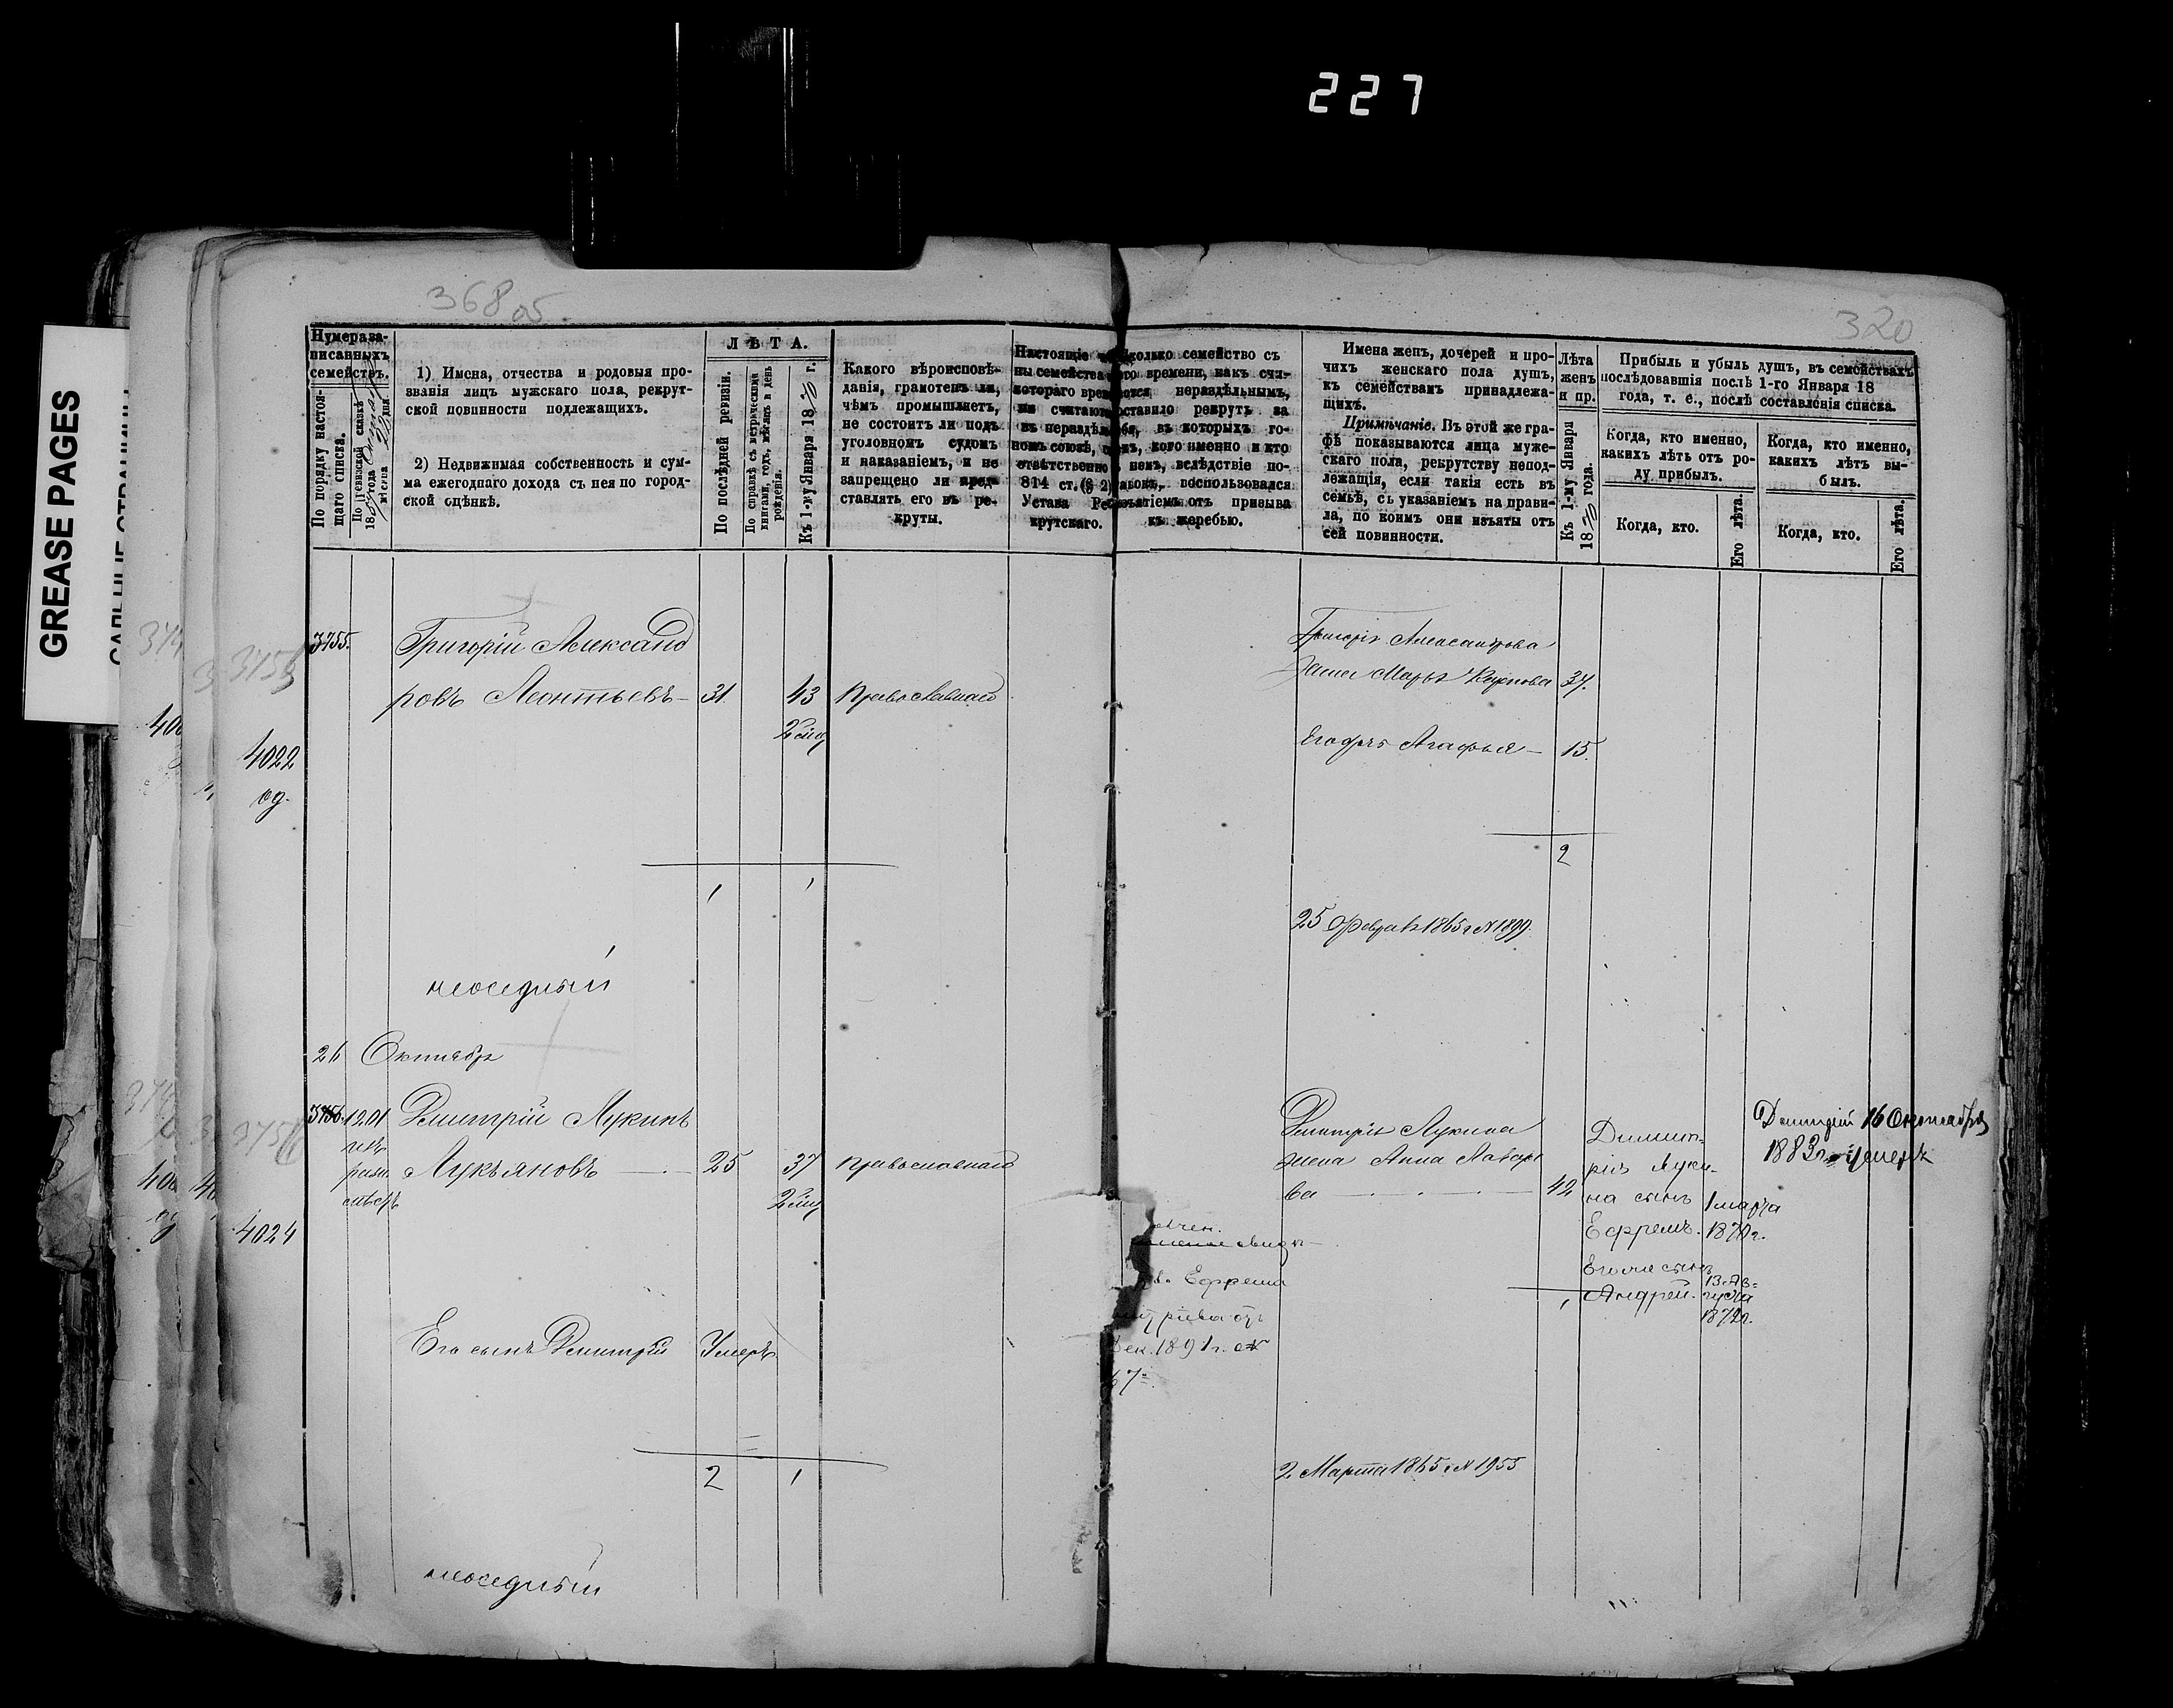 227
GREASE PAGES
368 об.
320
Нумера за-
писанныхъ
семействъ.
По порядку настоя-
щаго списка.
По ревизской сказкѣ
1) Имена, отчества и родовыя про-
званія лицъ мужскаго пола, рекрут-
ской повинности подлежащихъ.
2) Недвижимая собственность и сум-
ма ежегоднаго дохода съ нея по город-
ской оцѣнкѣ.
ЛѢТА.
По послѣдней ревизіи.
По справкѣ съ метрическими
книгами, годъ, мѣсяцъ и день
рожденія.
Къ 1-му Января 1870 г.
Какого вѣроисповѣ-
данія, грамотенъ ли,
чѣмъ промышляетъ,
не состоитъ ли подъ
уголовномъ судомъ
и наказаніемъ, и не
запрещено ли пред-
ставлять его въ ре-
круты.
Настоящіе
ны семейства
котораго
ли считаютъ
въ нераздѣль
номъ союзѣ,
отвѣтственно
814 ст. (§ 2)
Устава Ре-
крутскаго.
сколько семейство съ
того времени, какъ счи-
тается нераздѣльнымъ,
оставило рекрутъ за
себя, въ которыхъ го-
дахъ, кого именно и кто
въ немъ, вслѣдствіе по-
воспользовался
изъятіемъ отъ призыва
къ жеребью.
Имена женъ, дочерей и про-
чихъ женскаго пола душъ,
къ семействамъ принадлежа-
щихъ.
Примѣчаніе. Въ этой же гра-
фѣ показываются лица муже-
скаго пола, рекрутству непод-
лежащія, если такія есть въ
семьѣ, съ указаніемъ на прави-
ла, по коимъ они изъяты отъ
сей повинности.
Лѣта
женъ
и пр.
Къ 1-му Января
1870 года.
Прибыль и убыль душъ, въ семействахъ
послѣдовавшія послѣ 1-го Января 18
года, т. е., послѣ составленія списка.
Когда, кто именно,
какихъ лѣтъ отъ ро-
ду прибылъ.
Когда, кто именно,
какихъ лѣтъ вы-
былъ.
Когда, кто.
Его лѣта.
Когда, кто.
Его лѣта.
3755
4022
од.
3755. Григорій Александ
ровъ Леонтьевъ — 31. 43 Православнаго
Григорія Александрова
жена Марья Карпова 37.
Его дочь Агафья — 15.
2
1 1
25 Февраля 1865 г. № 1899.
неоседлый
26 Октября
3756. 1201 Дмитрій Лукинъ
Лукьяновъ — 25 37 православнаго
3756
4024
Дмитрія Лукина
жена Анна Лаваре
ва — 42
Димит-
рія Луки-
на сынъ 1 марта
Ефремъ. 1870 г.
Его же сынъ
Андрей. 13 Ав-
густа
1872 г.
1
Дмитрій 16 Октября
1883 г. умеръ
Ефрема
Дек. 1891 г. №
67
Его сынъ Дмитрій Умеръ
2 1
2 Марта 1865 г. № 1955
неоседлый